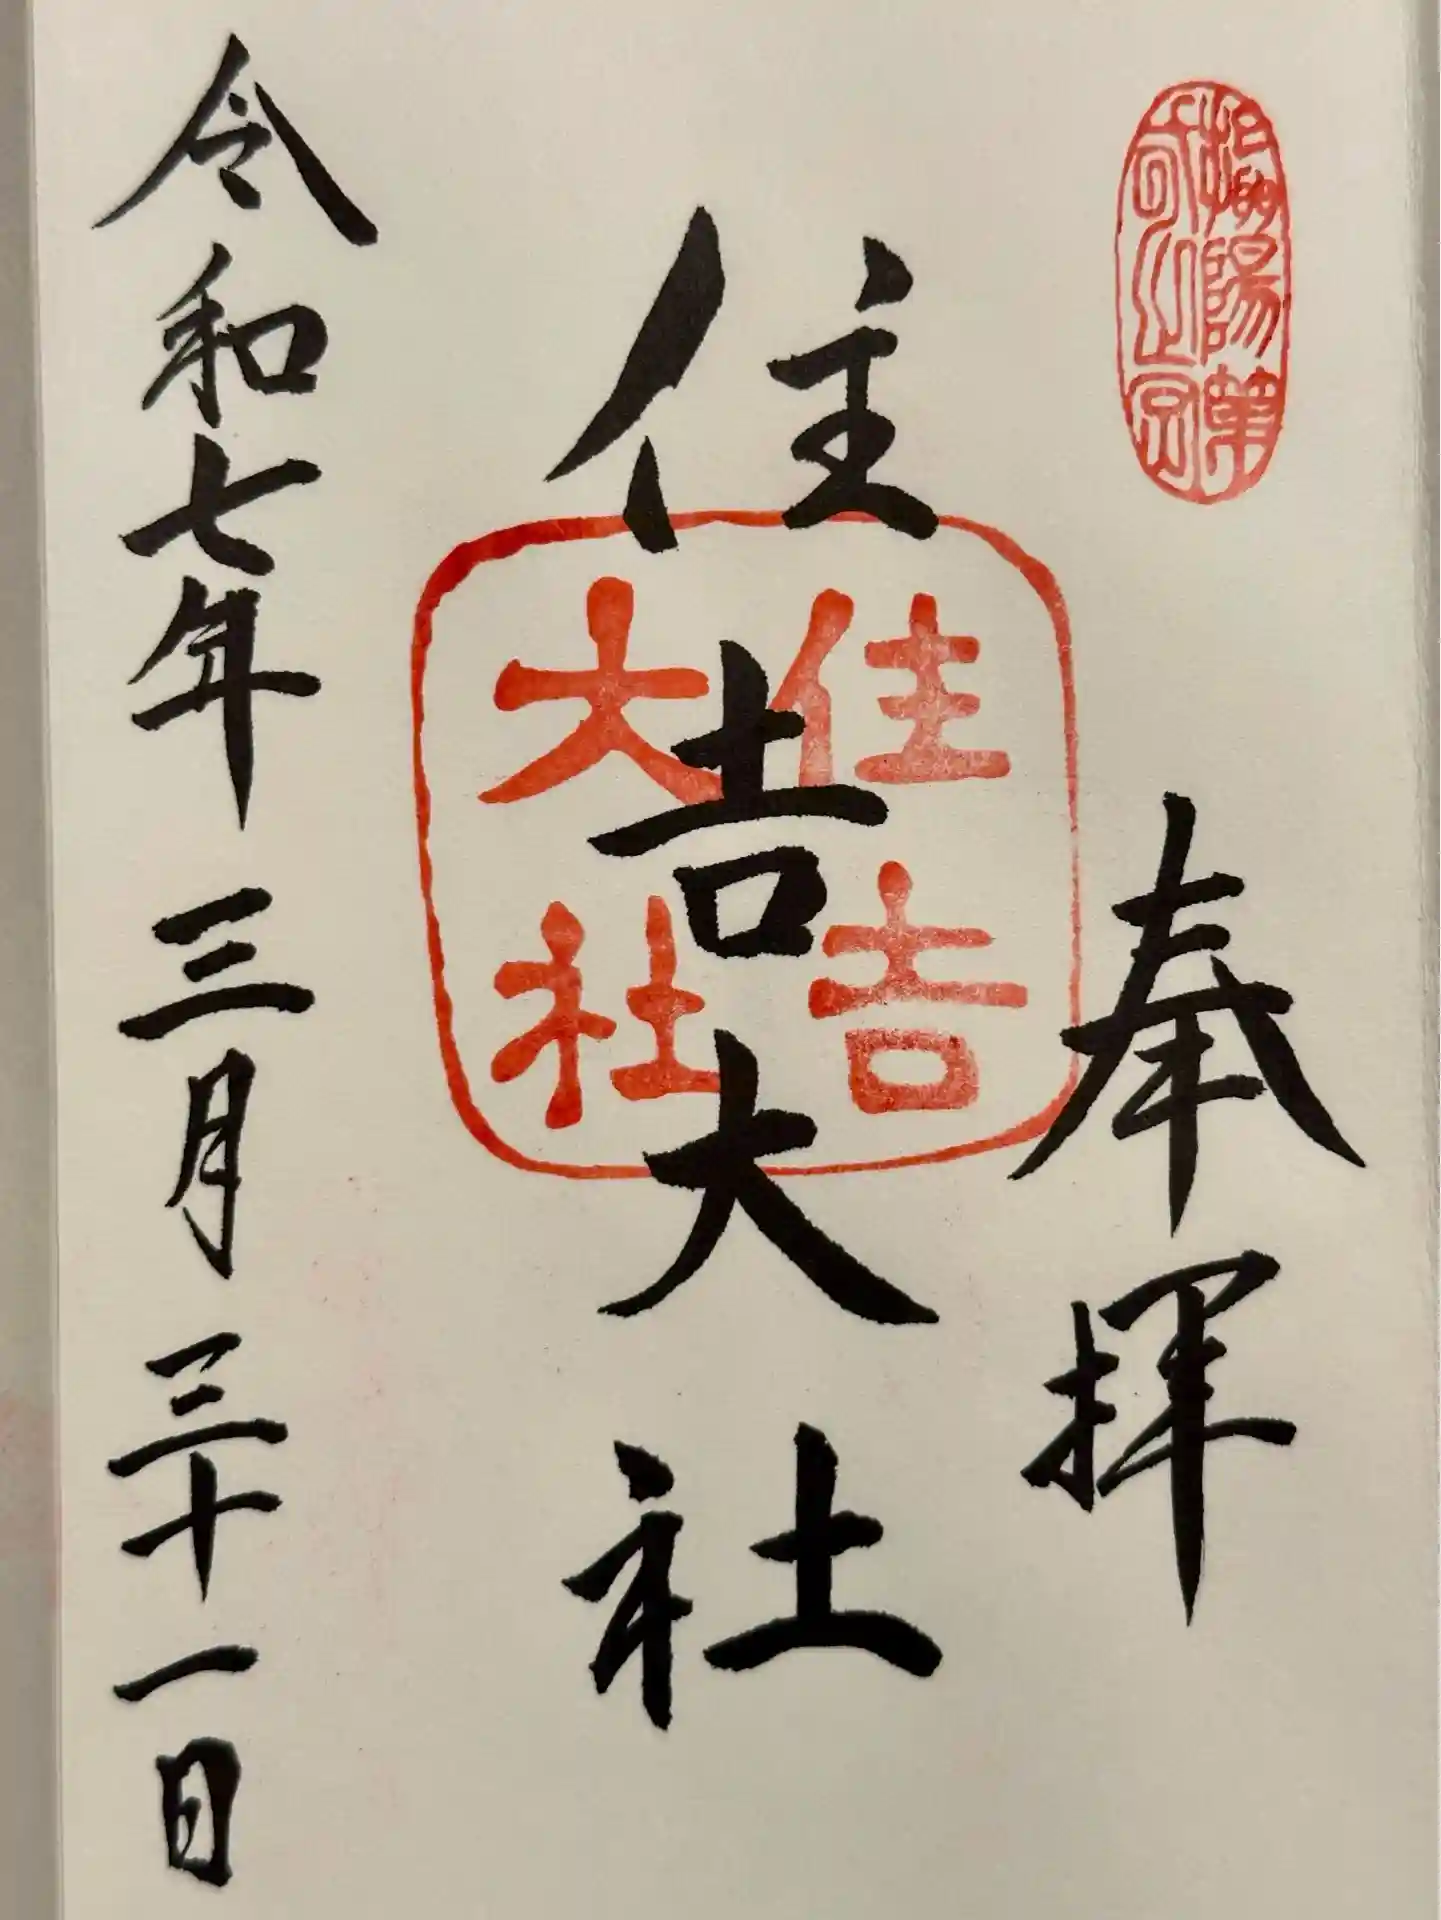 奉拝
住吉大社
住吉
大社
令和七年三月三十一日